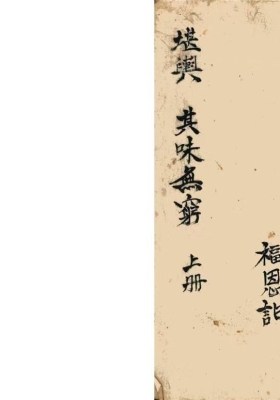 福恩
堪輿 其味無窮 上册